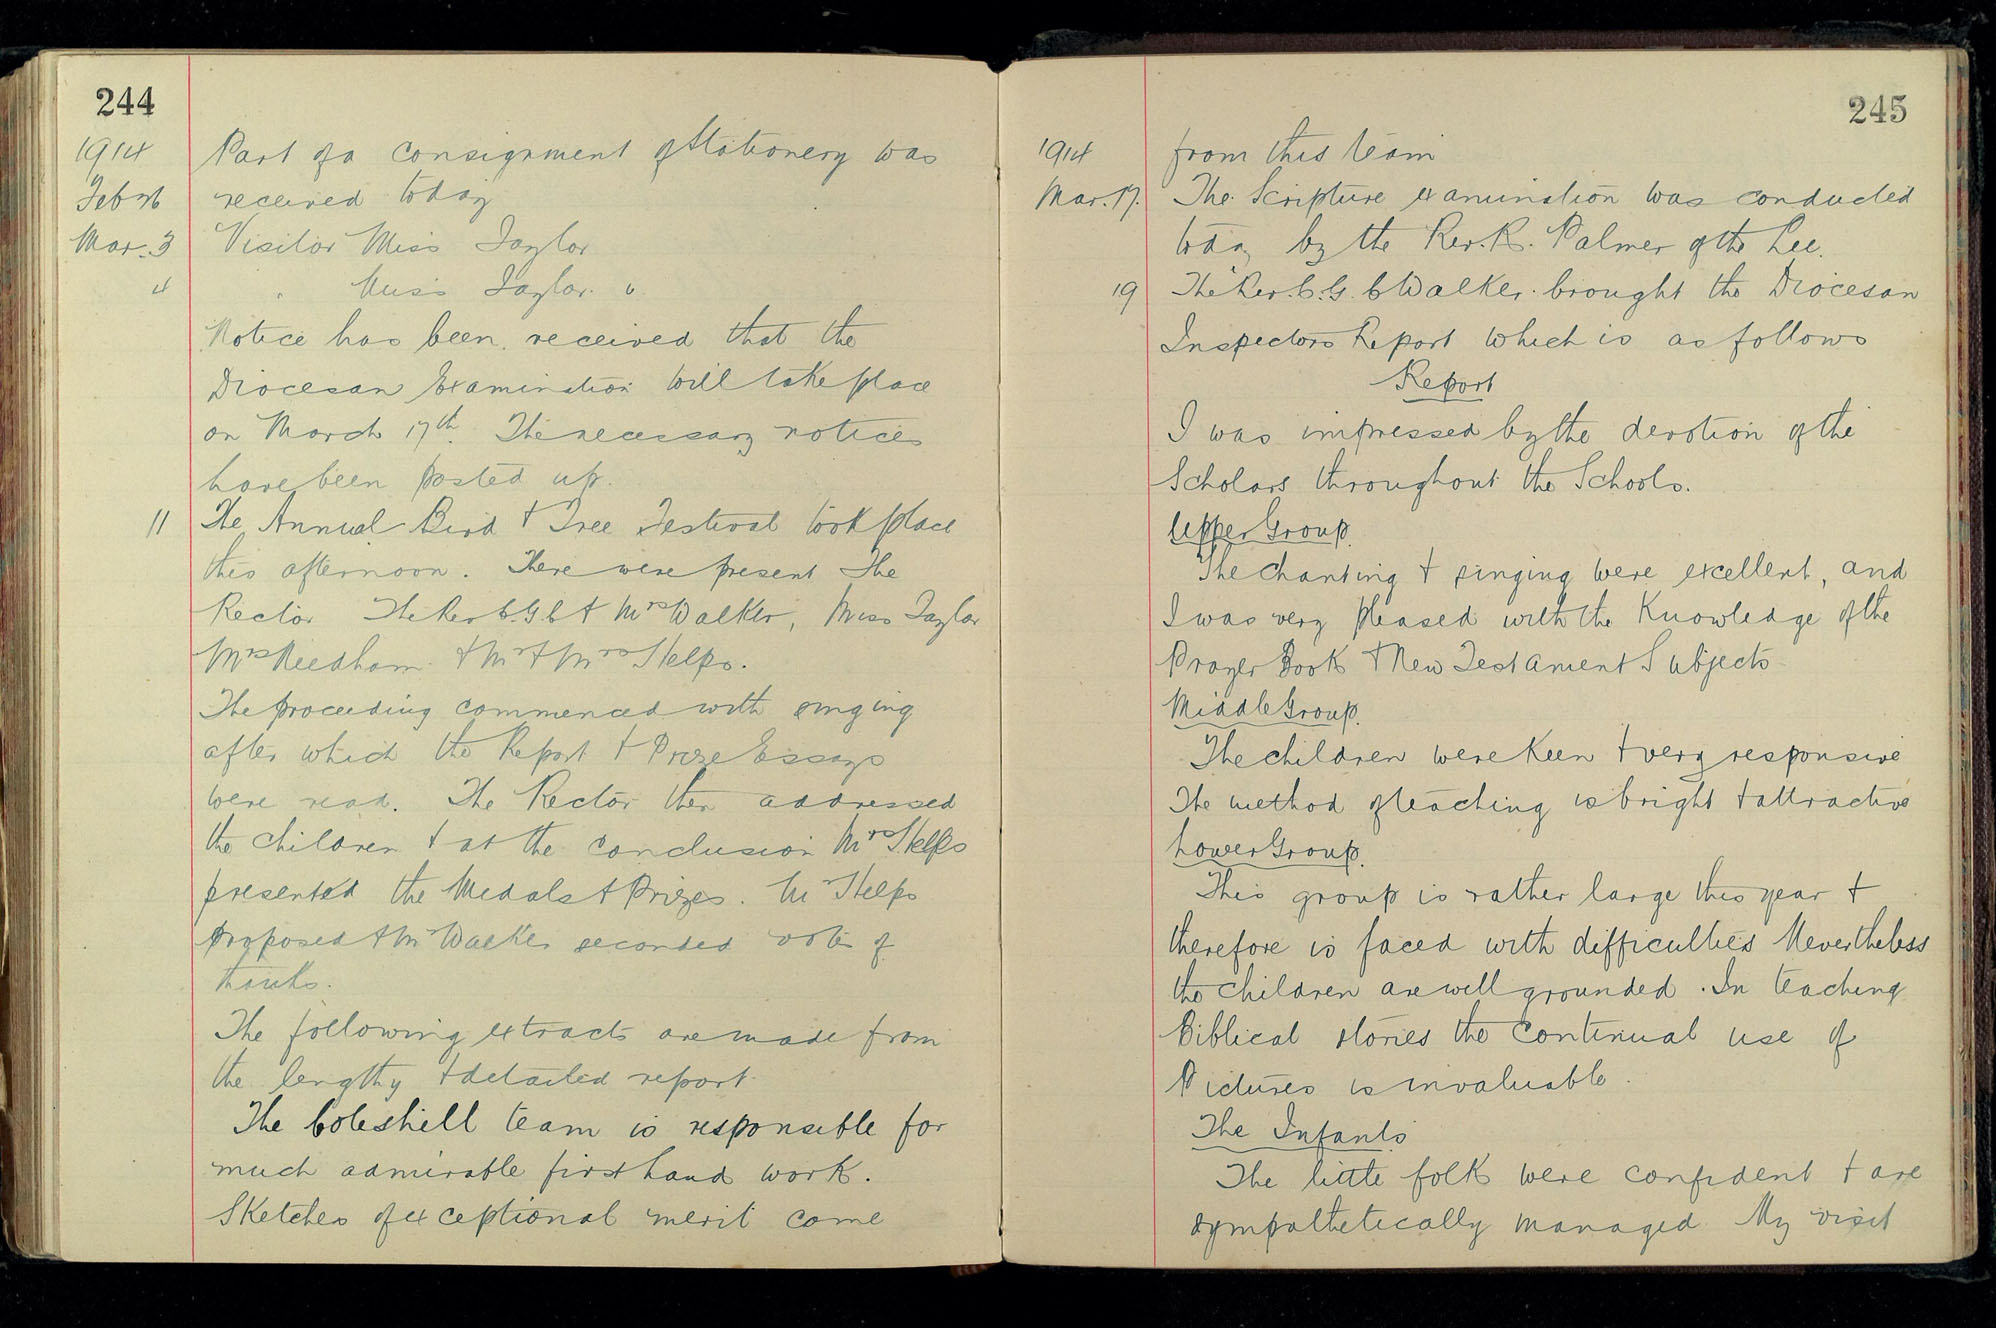 244
1914 Part of a consignment of Stationery was
Feb 26 received today
Mar. 3 Visitor Miss Taylor
4 " Miss Taylor. "
Notice has been received that the
Diocesan Examination will take place
on March 17th. The necessary notices
have been posted up.
11 The Annual Bird + Tree Festival took place
this afternoon. There were present The
Rector The Rev C.G.C + Mrs Walker, Miss Taylor
Mrs Needham + Mr + Mrs Skelps.
The proceeding commenced with singing
after which the Report + Prize Essays
were read. The Rector then addressed
the children + at the conclusion Mrs Skelps
presented the Medals + Prizes. Mr Skelps
proposed + Mr Walker seconded vote of
thanks.
The following extracts are made from
the lengthy + detailed report
The Coleshill team is responsible for
much admirable first hand work.
Sketches of exceptional merit come
245
1914 from this team
Mar. 17. The Scripture examination was conducted
today by the Rev. R. Palmer of the Lee.
19 The Rev. C.G.C Walker. brought the Diocesan
Inspectors Report which is as follows
Report
I was impressed by the devotion of the
Scholars throughout the Schools.
Upper Group.
The chanting + singing were excellent, and
I was very pleased with the Knowledge of the
Prayer Book + New Testament Subjects
Middle Group.
The children were Keen + very responsive
The method of teaching is bright + attractive
Lower Group.
This group is rather large this year +
therefore is faced with difficulties Nevertheless
the children are well grounded. In teaching
Biblical stories the continual use of
Pictures is invaluable.
The Infants
The little folk were confident + are
sympathetically managed My visit